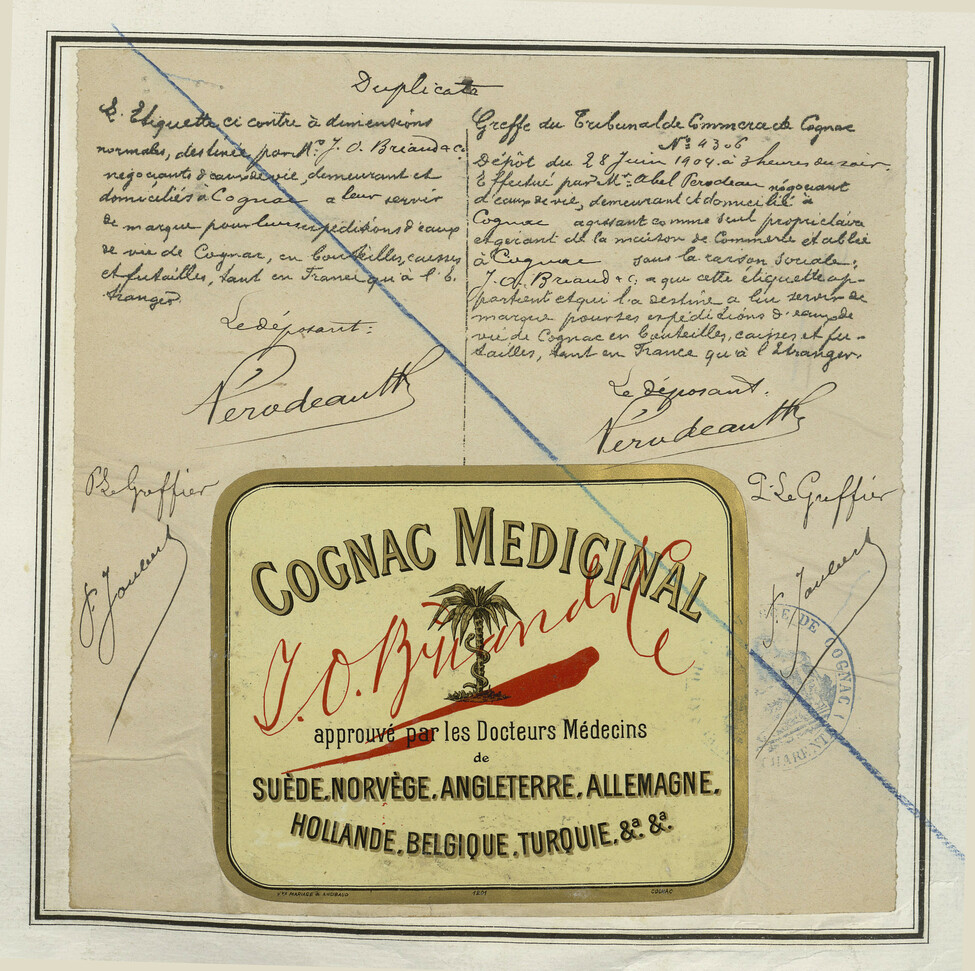 Duplicata
L'Etiquette ci contre à dimensions
normales, destinée par Mrs. J. O. Briaud & Co.
négociants d'eaux de vie, demeurant et
domiciliés à Cognac a leur servir
de marque pour leurs expéditions d'eaux
de vie de Cognac, en bouteilles, caisses
et futailles, tant en France qu'à l'E-
tranger.
Le déposant:
Perodeau
P. Le Greffier
Greffe du Tribunal de Commerce de Cognac
No 4306
Dépôt du 28 Juin 1904 à 3 heures du soir
Effectué par Mr. Abel Perodeau négociant
d'eaux de vie, demeurant et domicilié à
Cognac agissant comme seul propriétaire
et gérant de la maison de Commerce établie
à Cognac sous la raison sociale:
J. O. Briaud & C. a que cette étiquette ap-
partient et qui l'a destine a lui servir de
marque pour ses expéditions d'eaux de
vie de Cognac en bouteilles, caisses et fu-
tailles, tant en France qu'à l'Etranger.
Le déposant.
Perodeau
P. Le Greffier
COGNAC MEDICINAL
J. O. Briaud & Ce
approuvé par les Docteurs Médecins
de
SUÈDE. NORVÈGE. ANGLETERRE. ALLEMAGNE.
HOLLANDE. BELGIQUE. TURQUIE. &a. &a.
COGNAC
DE COGNAC
CHARENTE